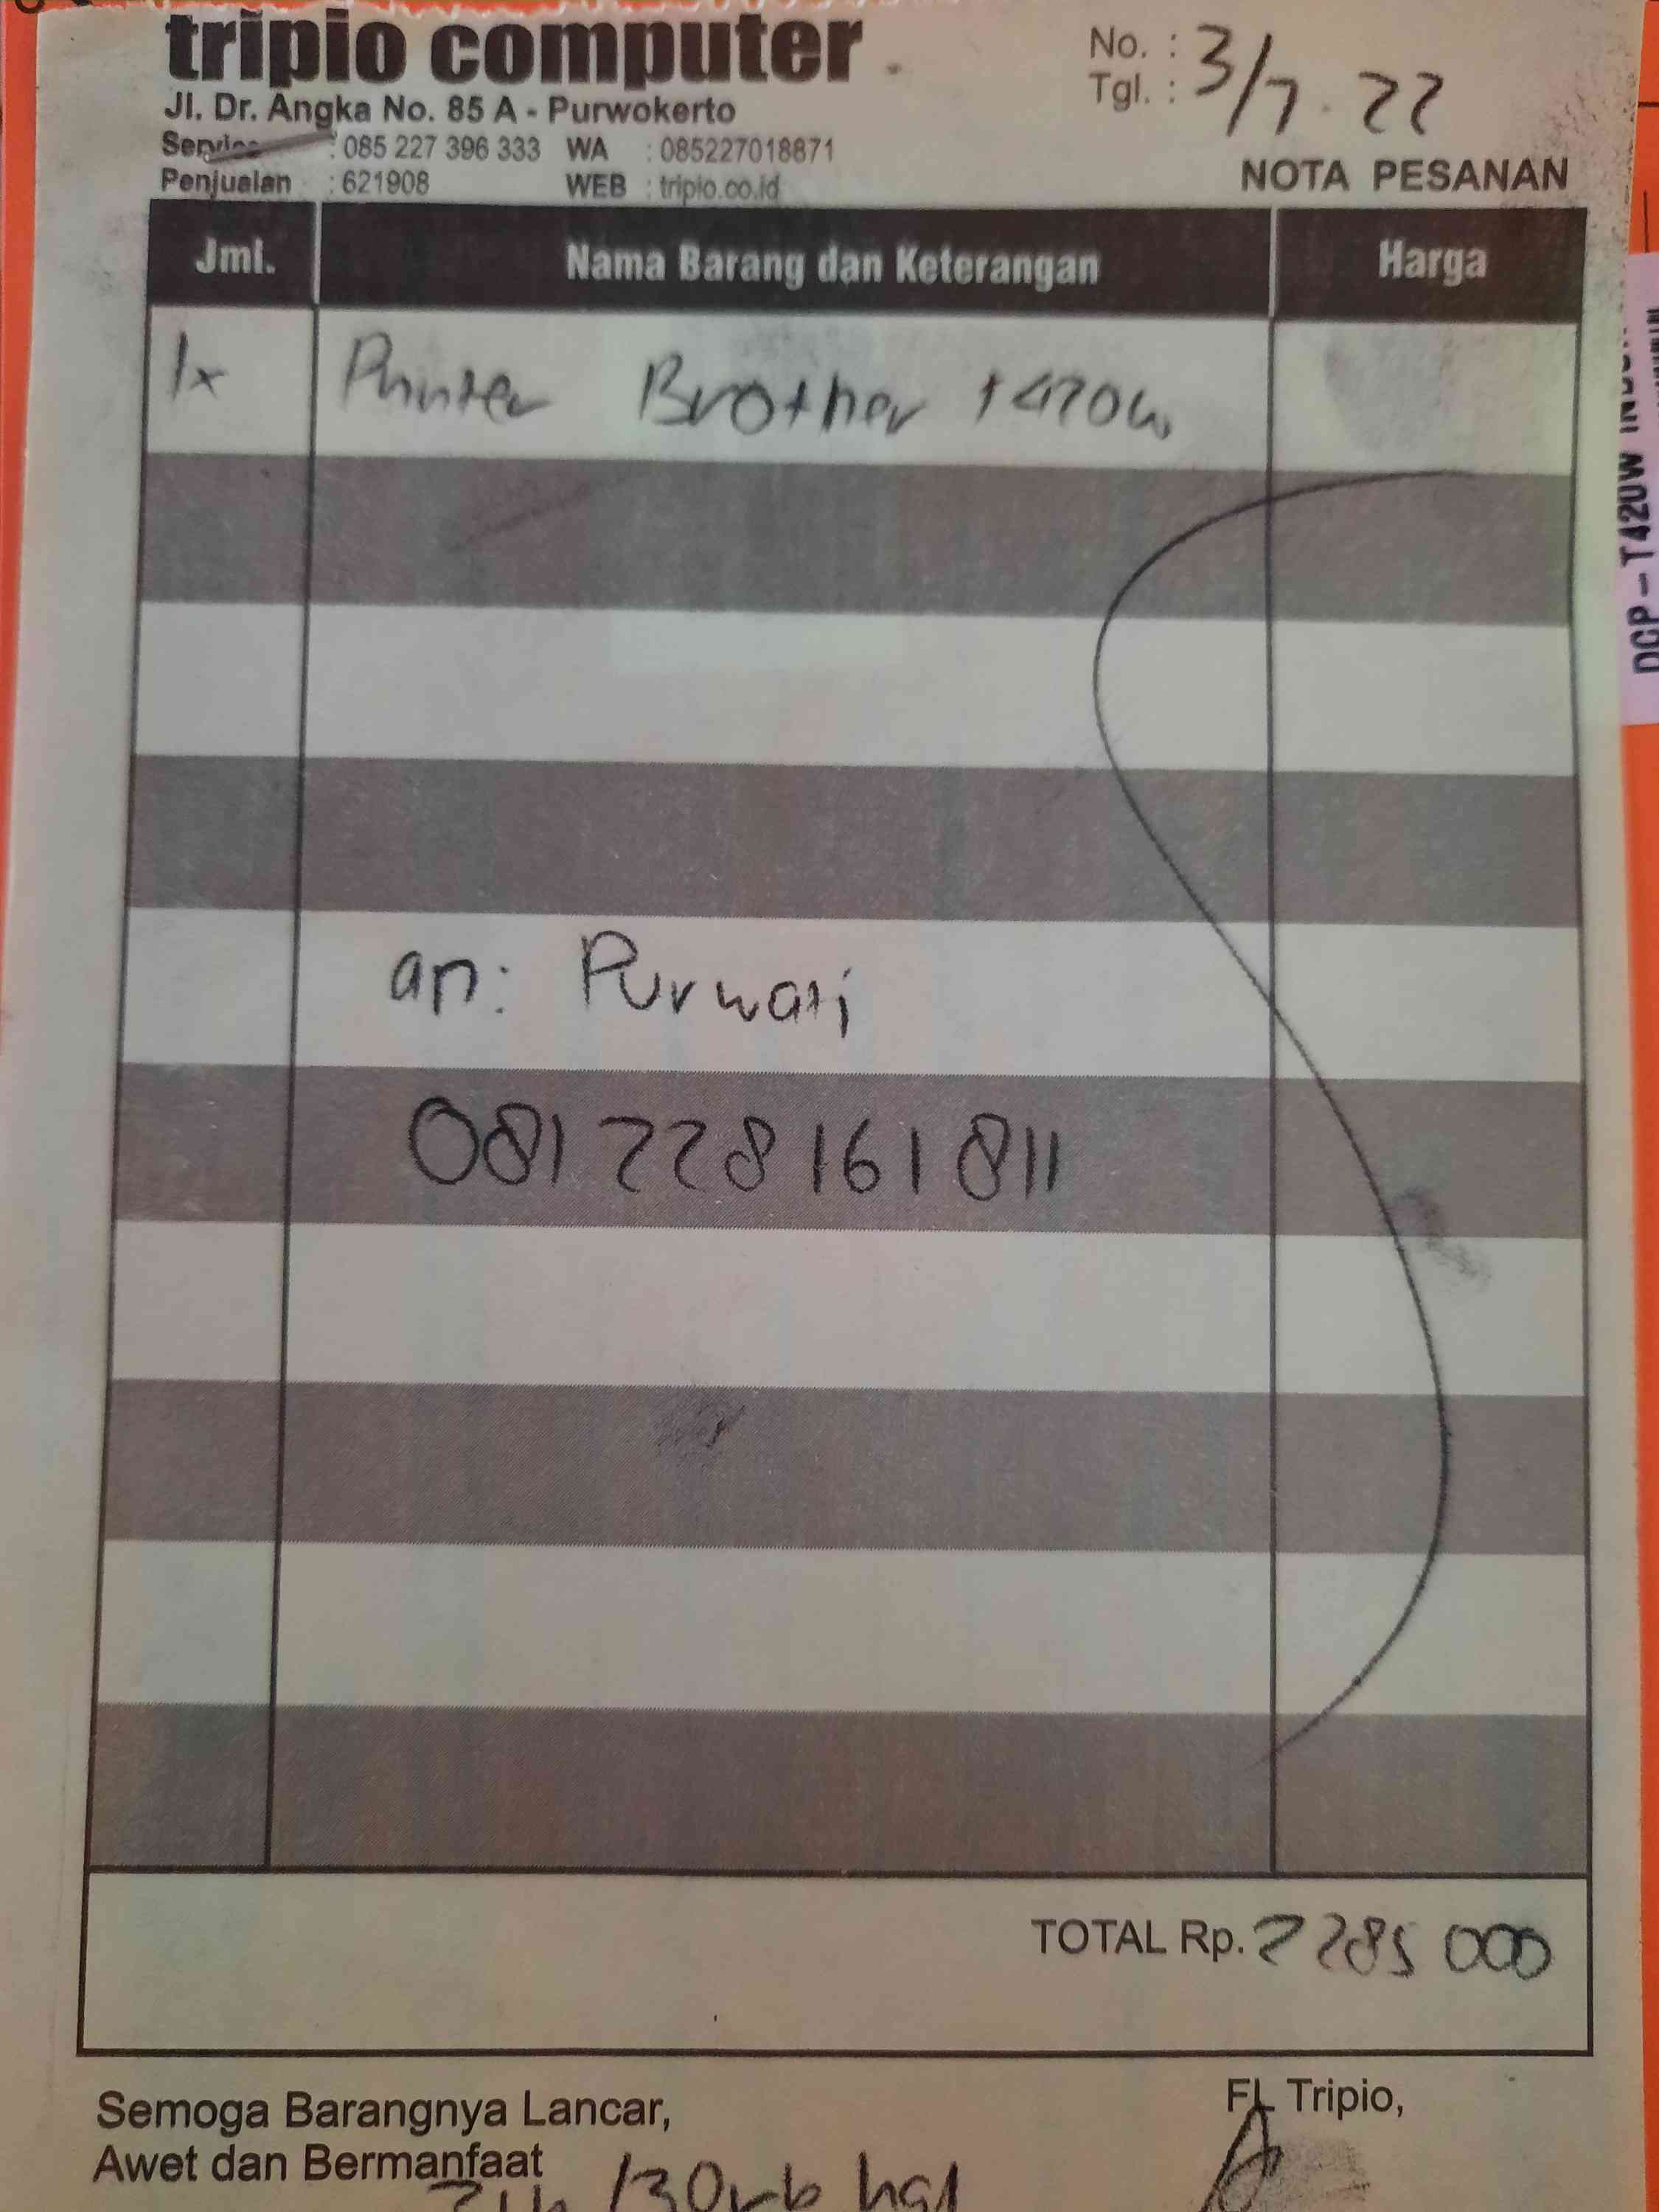 tripio computer
Jl. Dr. Angka No. 85 A - Purwokerto
Service : 085 227 396 333 WA : 085227018871
Penjualan : 621908 WEB : tripio.co.id
No. :
Tgl. : 3/7.22
NOTA PESANAN
Jml. Nama Barang dan Keterangan Harga
1x Printer Brother t420w
an: Purwati
081228161811
TOTAL Rp. 2285000
Semoga Barangnya Lancar,
Awet dan Bermanfaat
FL Tripio,
DCP - T420W